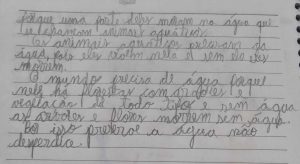 porque uma parte deles moram na água que
se chamam animais aquáticos.
Os animais aquáticos precisam da
água, pois eles vivem nela e sem ela eles
morrem.
O mundo precisa de água porque
nela há florestas com árvores e
vegetação de todo tipo e sem água
as árvores e flores morrem sem água.
Por isso preserve a água não
desperdice.